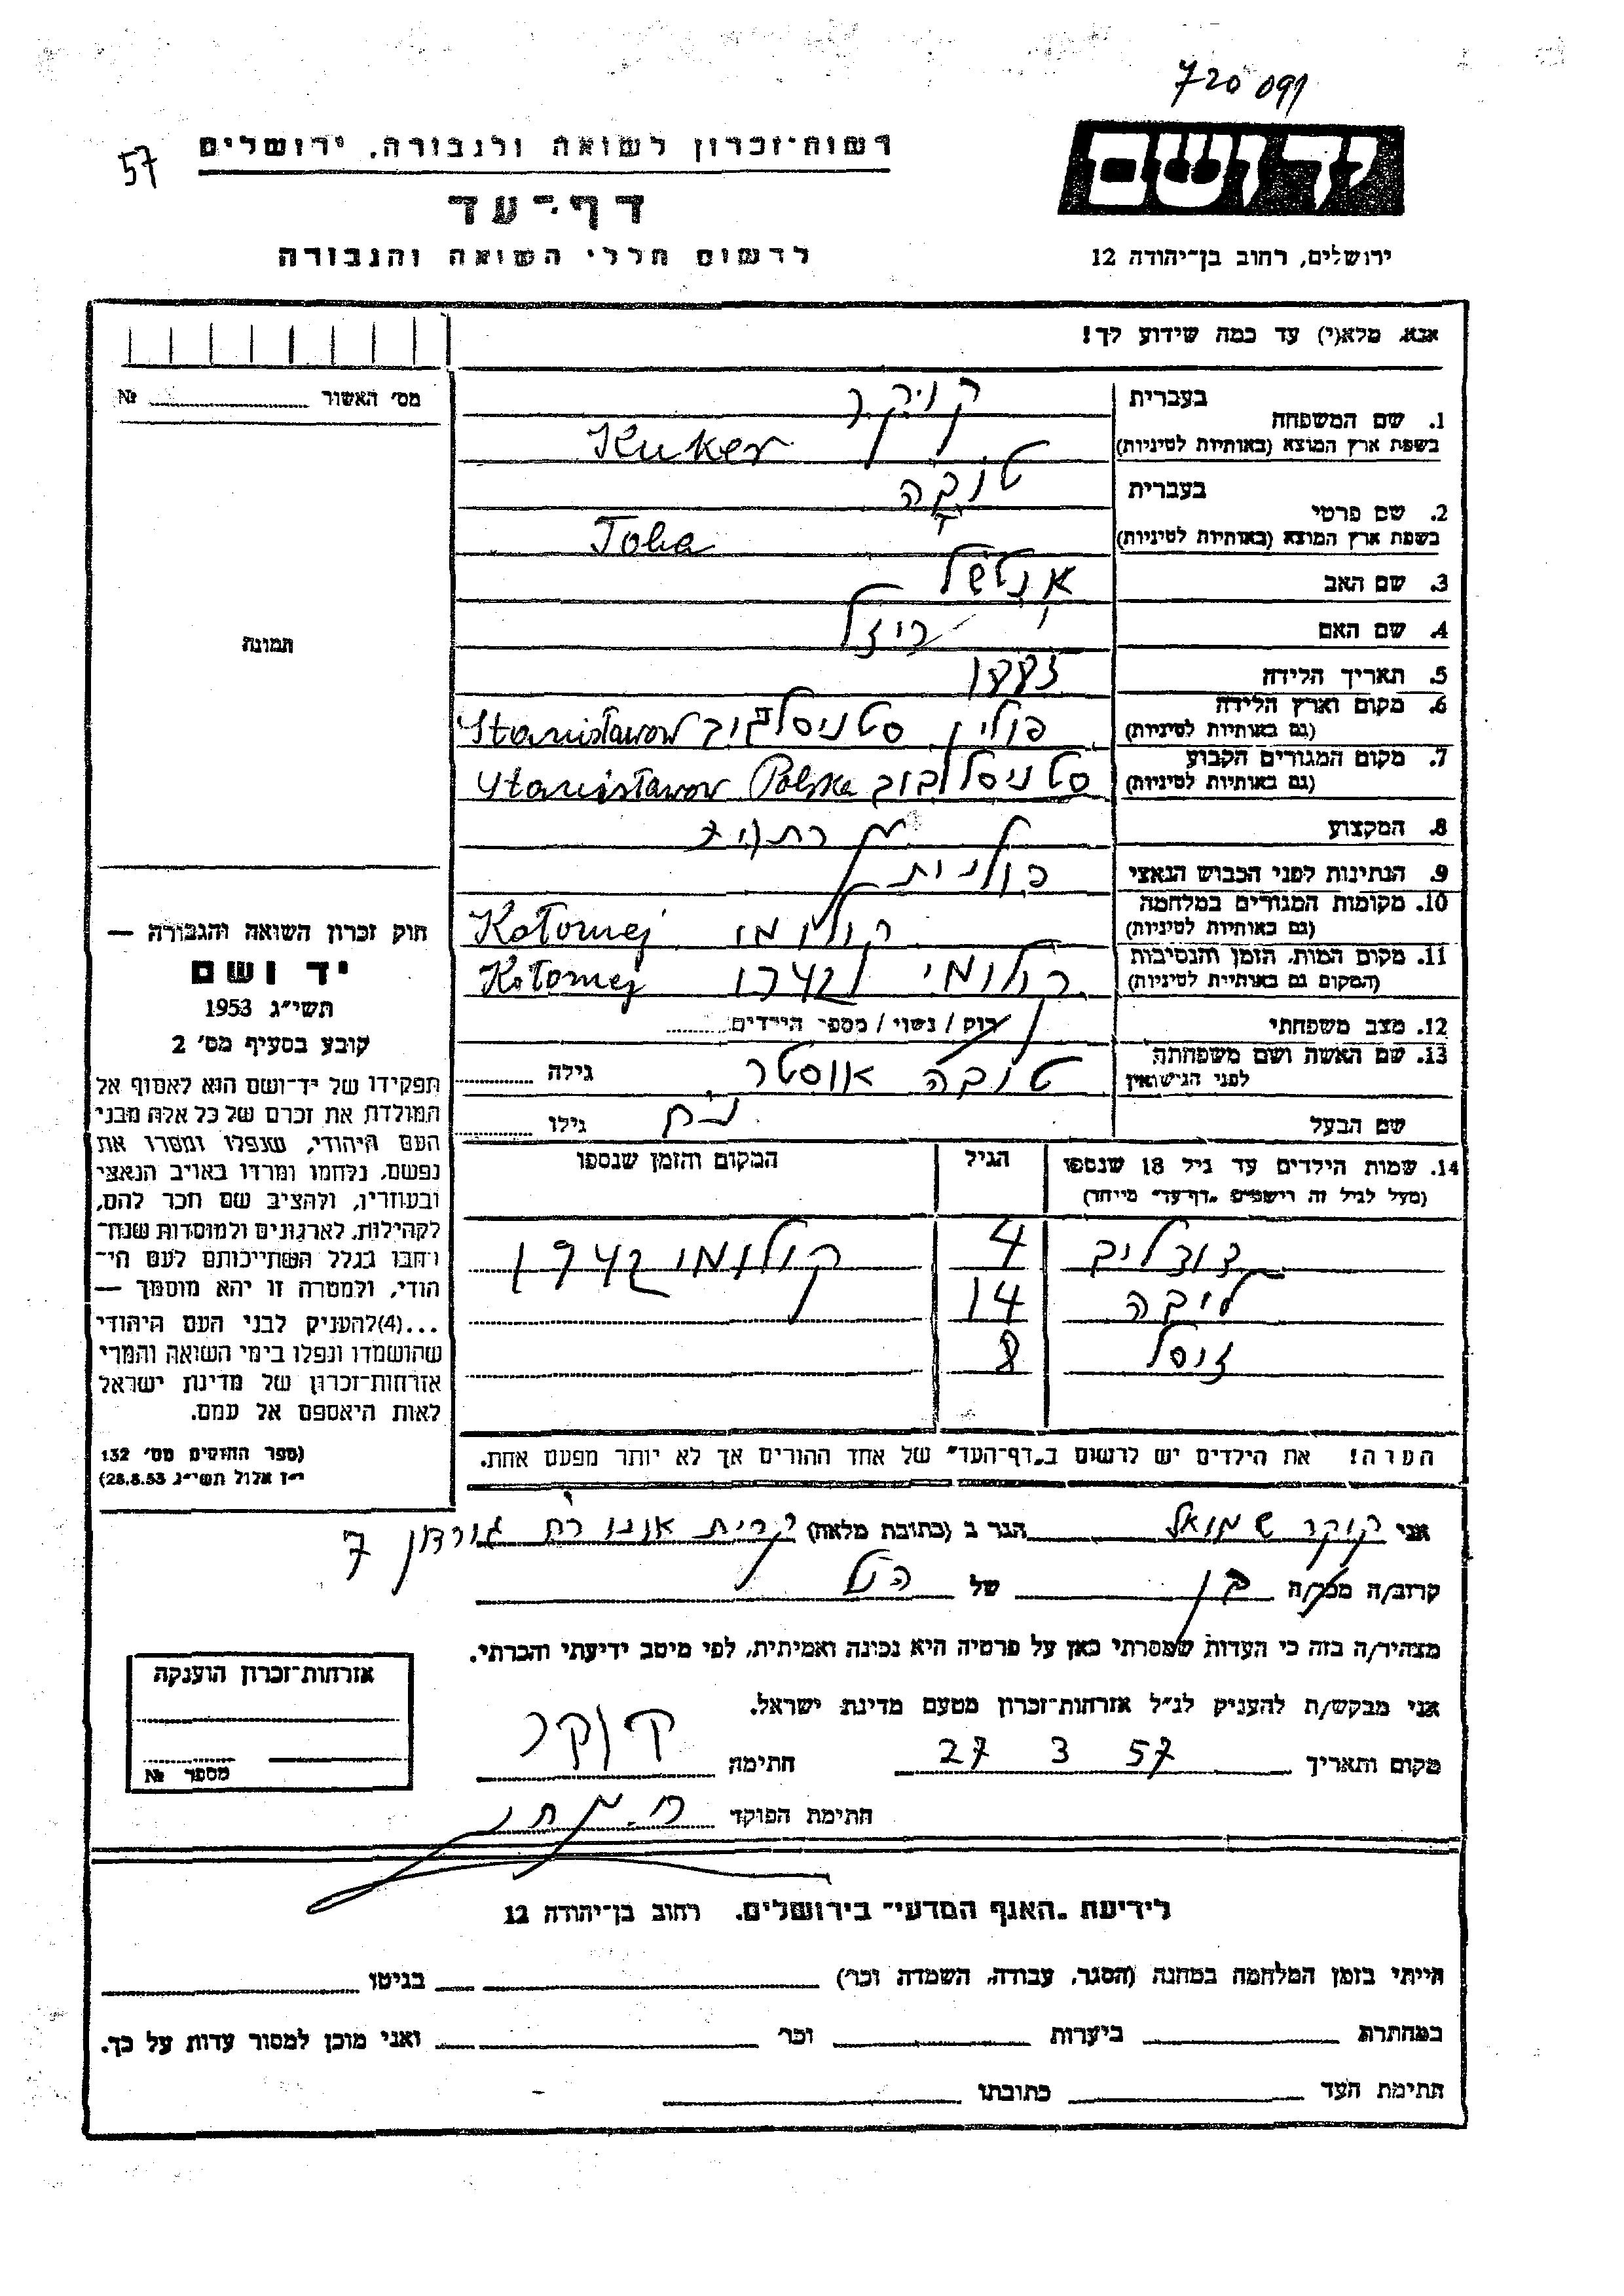 720 091
57
רשות־זכרון לשואה ולגבורה, ירושלים
יד ושם
דף־עד
לרשום חללי השואה והגבורה
ירושלים, רחוב בן־יהודה 12
אנא, מלא(י) עד כמה שידוע לך!
מס' האשור № 
1. שם המשפחה
בעברית קויקר
בשפת ארץ המוצא (באותיות לטיניות) Kuker
2. שם פרטי
בעברית טובה
בשפת ארץ המוצא (באותיות לטיניות) Toba
3. שם האב אנטשל
4. שם האם רייזל
5. תאריך הלידה
תמונה
6. מקום וארץ הלידה (גם באותיות לטיניות) פולין סטניסלבוב Stanisławow
7. מקום המגורים הקבוע (גם באותיות לטיניות) סטניסלבוב Stanisławow Polska
8. המקצוע
9. הנתינות לפני הכבוש הנאצי פולנית
10. מקומות המגורים במלחמה (גם באותיות לטיניות) קולומי Kołomej
11. מקום המות, הזמן והנסיבות (המקום גם באותיות לטיניות) קולומי 1942 Kołomej
12. מצב משפחתי רוק / נשוי / מספר הילדים
13. שם האשה ושם משפחתה לפני הנישואין טובה אוסטר גילה
שם הבעל גילו
14. שמות הילדים עד גיל 18 שנספו
(מעל לגיל זה רישמים "דף־עד" מיוחד)
הגיל
המקום והזמן שנספו
4 קולומי 1942
ליבה 14
זיסל 8
הערה! את הילדים יש לרשום ב"דף־העד" של אחד ההורים אך לא יותר מפעם אחת.
חוק זכרון השואה והגבורה —
יד ושם
תשי"ג 1953
קובע בסעיף מס' 2
תפקידו של יד־ושם הוא לאסוף אל
המולדת את זכרם של כל אלה מבני
העם היהודי, שנפלו ומסרו את
נפשם, נלחמו ומרדו באויב הנאצי
ובעוזריו, ולהציב שם וזכר להם,
לקהילות, לארגונים ולמוסדות שנח־
רבו בגלל השתייכותם לעם הי־
הודי, ולמטרה זו יהא מוסמך —
...(4) להעניק לבני העם היהודי
שהושמדו ונפלו בימי השואה והמרי
אזרחות־זכרון של מדינת ישראל
לאות היאספם אל עמם.
(ספר החוקים מס' 132
י"ז אלול תשי"ג 28.8.53)
אני קוקר שמואל הגר ב (כתובת מלאה) קרית אונו רח גורדון 7
קרוב/ה מכר/ה בן של הנ"ל
מצהיר/ה בזה כי העדות שמסרתי כאן על פרטיה היא נכונה ואמיתית, לפי מיטב ידיעתי והכרתי.
אני מבקש/ת להעניק לנ"ל אזרחות־זכרון מטעם מדינת ישראל.
מקום ותאריך 27 3 57 חתימה קוקר
חתימת הפוקד
אזרחות־זכרון הוענקה
מספר №
לידיעת "האגף המדעי" בירושלים, רחוב בן־יהודה 12
הייתי בזמן המלחמה במחנה (הסגר, עבודה, השמדה וכו') בגיטו
במחתרת ביערות וכו' ואני מוכן למסור עדות על כך.
חתימת העד כתובתו